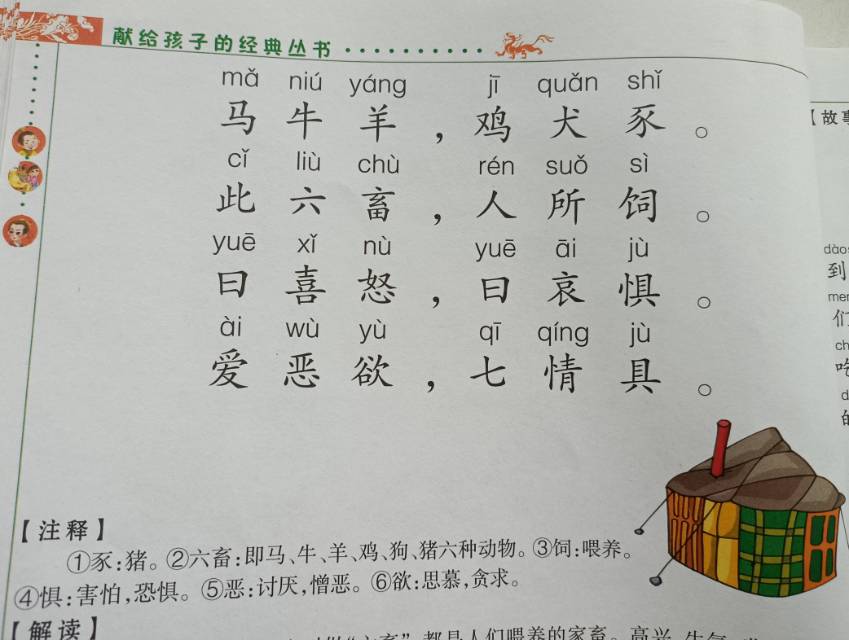 献给孩子的经典丛书
mǎ niú yáng jī quǎn shǐ
马牛羊，鸡犬豕。
cǐ liù chù rén suǒ sì
此六畜，人所饲。
yuē xǐ nù yuē āi jù
曰喜怒，曰哀惧。
ài wù yù qī qíng jù
爱恶欲，七情具。
【注释】
①豕:猪。②六畜:即马、牛、羊、鸡、狗、猪六种动物。③饲:喂养。
④惧:害怕,恐惧。⑤恶:讨厌,憎恶。⑥欲:思慕,贪求。
【解读】
都是人们喂养的家畜。高兴、生气
【故事
dào
到
们
吃
的